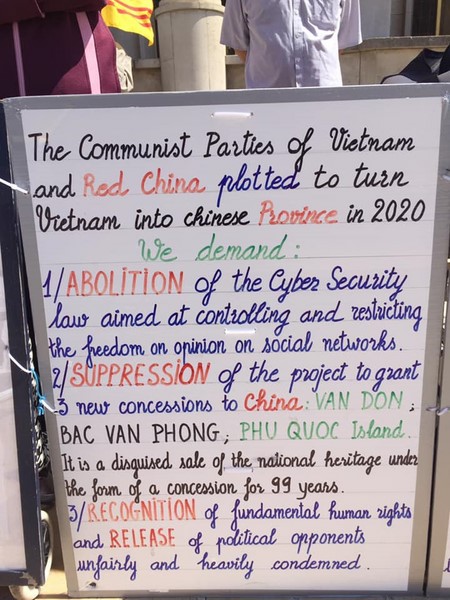 The Communist Parties of Vietnam
and Red China plotted to turn
Vietnam into chinese Province in 2020
We demand :
1/ ABOLITION of the Cyber Security
law aimed at controlling and restricting
the freedom on opinion on social networks.
2/ SUPPRESSION of the project to grant
3 new concessions to China : VAN DON ;
BAC VAN PHONG ; PHU QUOC Island.
It is a disguised sale of the national heritage under
the form of a concession for 99 years.
3/ RECOGNITION of fundamental human rights
and RELEASE of political opponents
unfairly and heavily condemned.